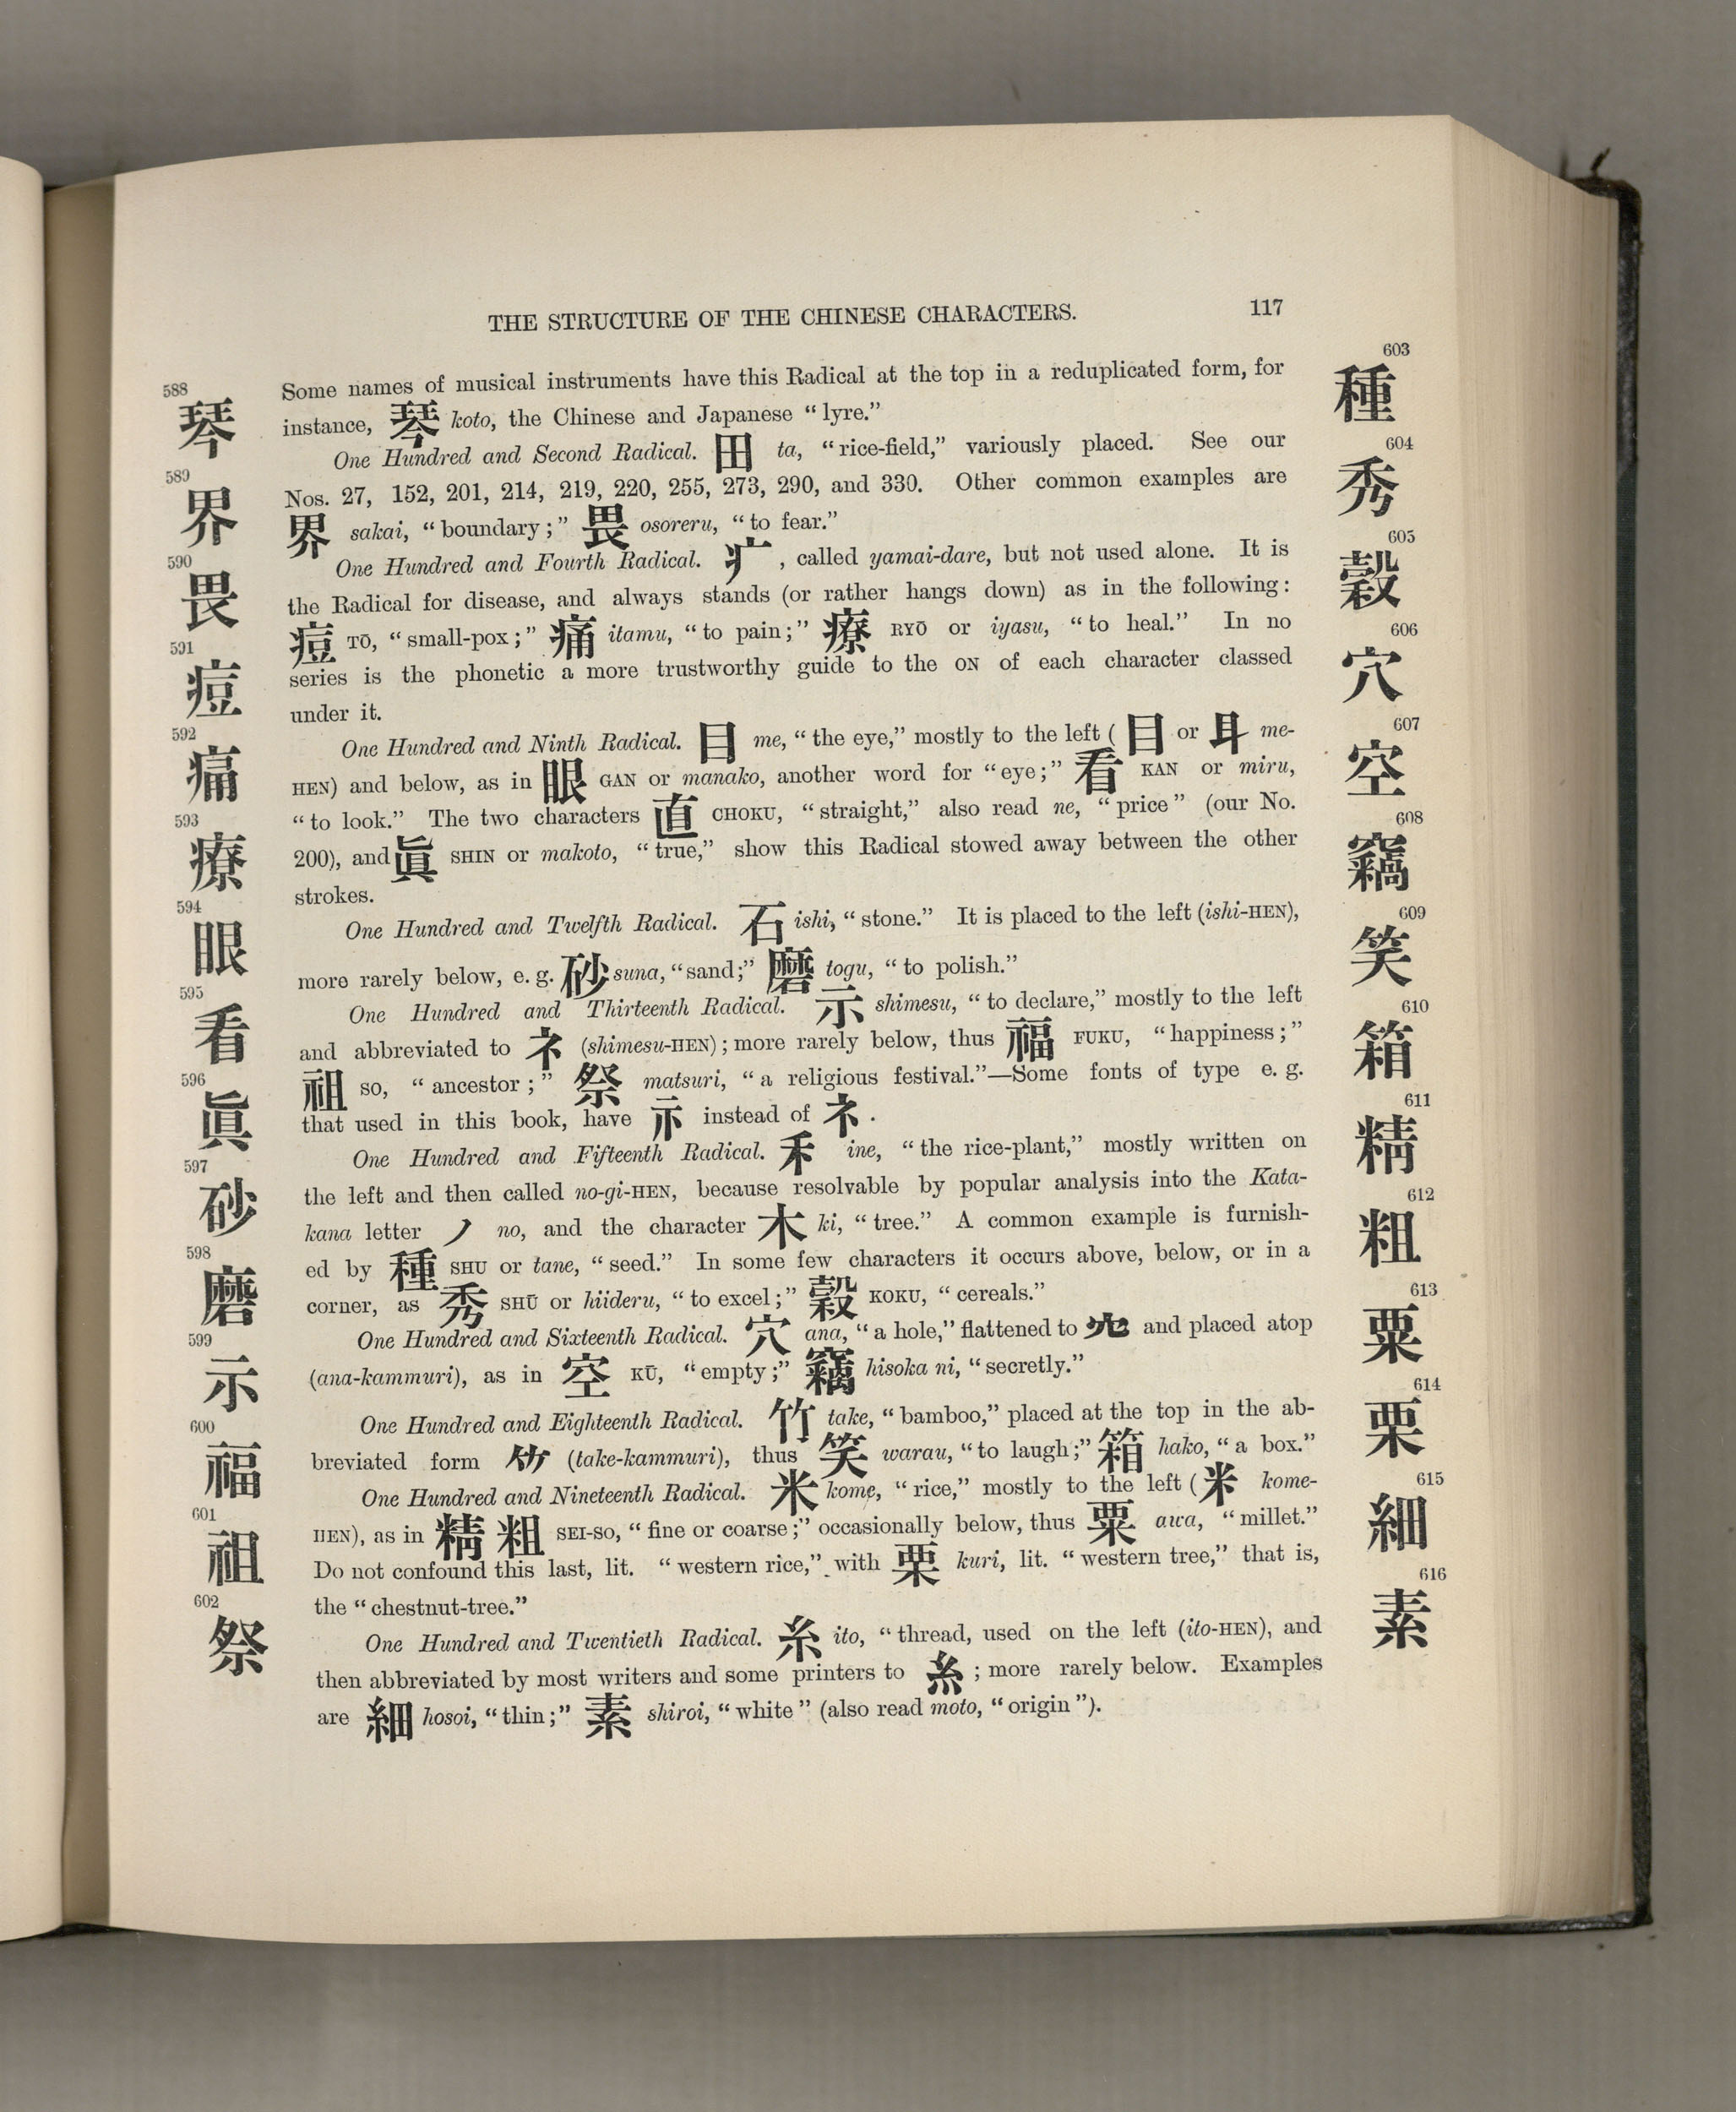 THE STRUCTURE OF THE CHINESE CHARACTERS. 117
588
琴
589
界
590
畏
591
痘
592
痛
593
療
594
眼
595
看
596
眞
597
砂
598
磨
599
示
600
福
601
祖
602
祭
Some names of musical instruments have this Radical at the top in a reduplicated form, for
instance, 琴 koto, the Chinese and Japanese “lyre.”
One Hundred and Second Radical. 田 ta, “rice-field,” variously placed. See our
Nos. 27, 152, 201, 214, 219, 220, 255, 273, 290, and 330. Other common examples are
界 sakai, “boundary;” 畏 osoreru, “to fear.”
One Hundred and Fourth Radical. 疒, called yamai-dare, but not used alone. It is
the Radical for disease, and always stands (or rather hangs down) as in the following:
痘 TŌ, “small-pox;” 痛 itamu, “to pain;” 療 RYŌ or iyasu, “to heal.” In no
series is the phonetic a more trustworthy guide to the ON of each character classed
under it.
One Hundred and Ninth Radical. 目 me, “the eye,” mostly to the left (目 or 耳 me-
HEN) and below, as in 眼 GAN or manako, another word for “eye;” 看 KAN or miru,
“to look.” The two characters 直 CHOKU, “straight,” also read ne, “price” (our No.
200), and 眞 SHIN or makoto, “true,” show this Radical stowed away between the other
strokes.
One Hundred and Twelfth Radical. 石 ishi, “stone.” It is placed to the left (ishi-HEN),
more rarely below, e. g. 砂 suna, “sand;” 磨 togu, “to polish.”
One Hundred and Thirteenth Radical. 示 shimesu, “to declare,” mostly to the left
and abbreviated to 礻 (shimesu-HEN); more rarely below, thus 福 FUKU, “happiness;”
祖 SO, “ancestor;” 祭 matsuri, “a religious festival.”—Some fonts of type e. g.
that used in this book, have 示 instead of 礻.
One Hundred and Fifteenth Radical. 禾 ine, “the rice-plant,” mostly written on
the left and then called no-gi-HEN, because resolvable by popular analysis into the Kata-
kana letter ノ no, and the character 木 ki, “tree.” A common example is furnish-
ed by 種 SHU or tane, “seed.” In some few characters it occurs above, below, or in a
corner, as 秀 SHŪ or hiideru, “to excel;” 穀 KOKU, “cereals.”
One Hundred and Sixteenth Radical. 穴 ana, “a hole,” flattened to and placed atop
(ana-kammuri), as in 空 KŪ, “empty;” 竊 hisoka ni, “secretly.”
One Hundred and Eighteenth Radical. 竹 take, “bamboo,” placed at the top in the ab-
breviated form 𥫗 (take-kammuri), thus 笑 warau, “to laugh;” 箱 hako, “a box.”
One Hundred and Nineteenth Radical. 米 kome, “rice,” mostly to the left (米 kome-
HEN), as in 精 粗 SEI-SO, “fine or coarse;” occasionally below, thus 粟 awa, “millet.”
Do not confound this last, lit. “western rice,” with 栗 kuri, lit. “western tree,” that is,
the “chestnut-tree.”
One Hundred and Twentieth Radical. 糸 ito, “thread, used on the left (ito-HEN), and
then abbreviated by most writers and some printers to 糹; more rarely below. Examples
are 細 hosoi, “thin;” 素 shiroi, “white” (also read moto, “origin”).
603
種
604
秀
605
穀
606
穴
607
空
608
竊
609
笑
610
箱
611
精
612
粗
613
粟
614
栗
615
細
616
素